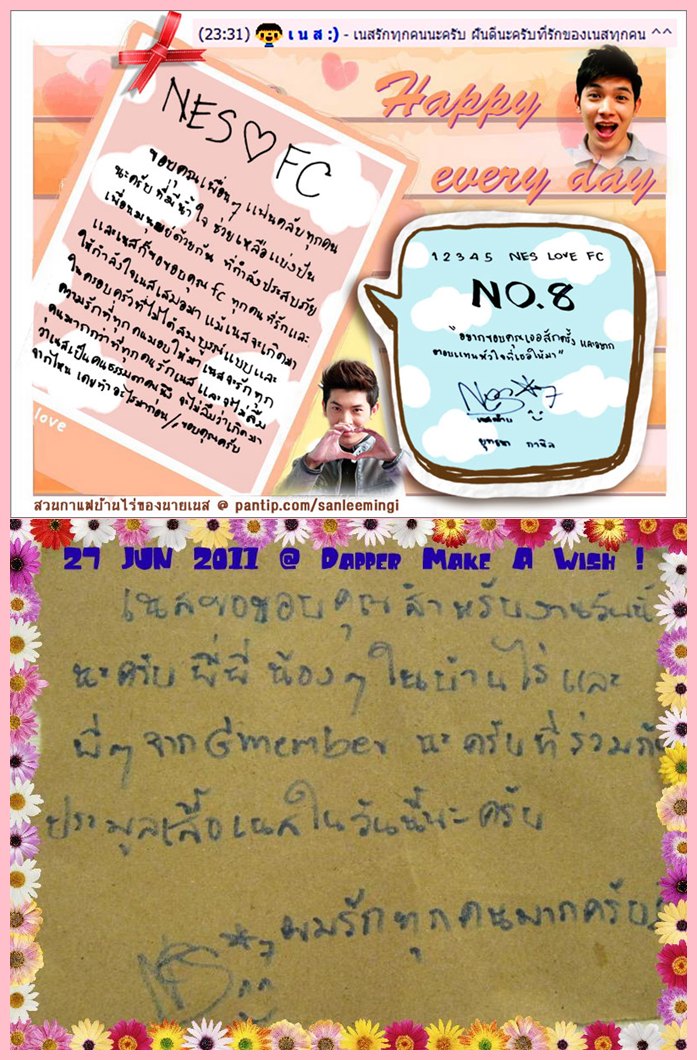 (23:31) เ น ส :) - เนสรักทุกคนนะครับ ฝันดีนะครับที่รักของเนสทุกคน ^^
Happy
every day
NES ♡ FC
ขอบคุณเพื่อนๆ แฟนคลับทุกคน
นะครับ ที่มีน้ำใจ ช่วยเหลือแบ่งปัน
เพื่อนมนุษย์ด้วยกัน ที่กำลังประสบภัย
และเนสก็ขอขอบคุณ FC ทุกคนที่รักและ
ให้กำลังใจเนสเสมอมา แม้เนสจะเกิดมา
ในครอบครัวที่ไม่ได้สมบูรณ์แบบและ
ความรักที่ทุกคนมอบให้มา เนสจะรักทุก
คนมากกว่าที่ทุกคนรักเนส และจะไม่ลืม
ว่าเนสเป็นคนธรรมดาคนนึง จะไม่ลืมว่าเกิดมา
จากไหน เคยทำอะไรมาก่อน ขอบคุณครับ
love
1 2 3 4 5 NES LOVE FC
NO.8
"อยากขอบคุณเธออีกครั้ง และอยาก
ตอบแทนหัวใจที่เธอให้มา"
Nes
สวนกาแฟบ้านไร่ของนายเนส @ pantip.com/sanleemingi
27 JUN 2011 @ DAPPER MAKE A WISH !
เนสขอขอบคุณสำหรับงานวันนี้
นะครับ พี่พี่ น้องๆ ในบ้านไร่ และ
พี่ๆ จาก Gmember นะครับที่ร่วมกัน
ประมูลเสื้อเนสในวันนี้นะครับ
ผมรักทุกคนมากครับ
NES